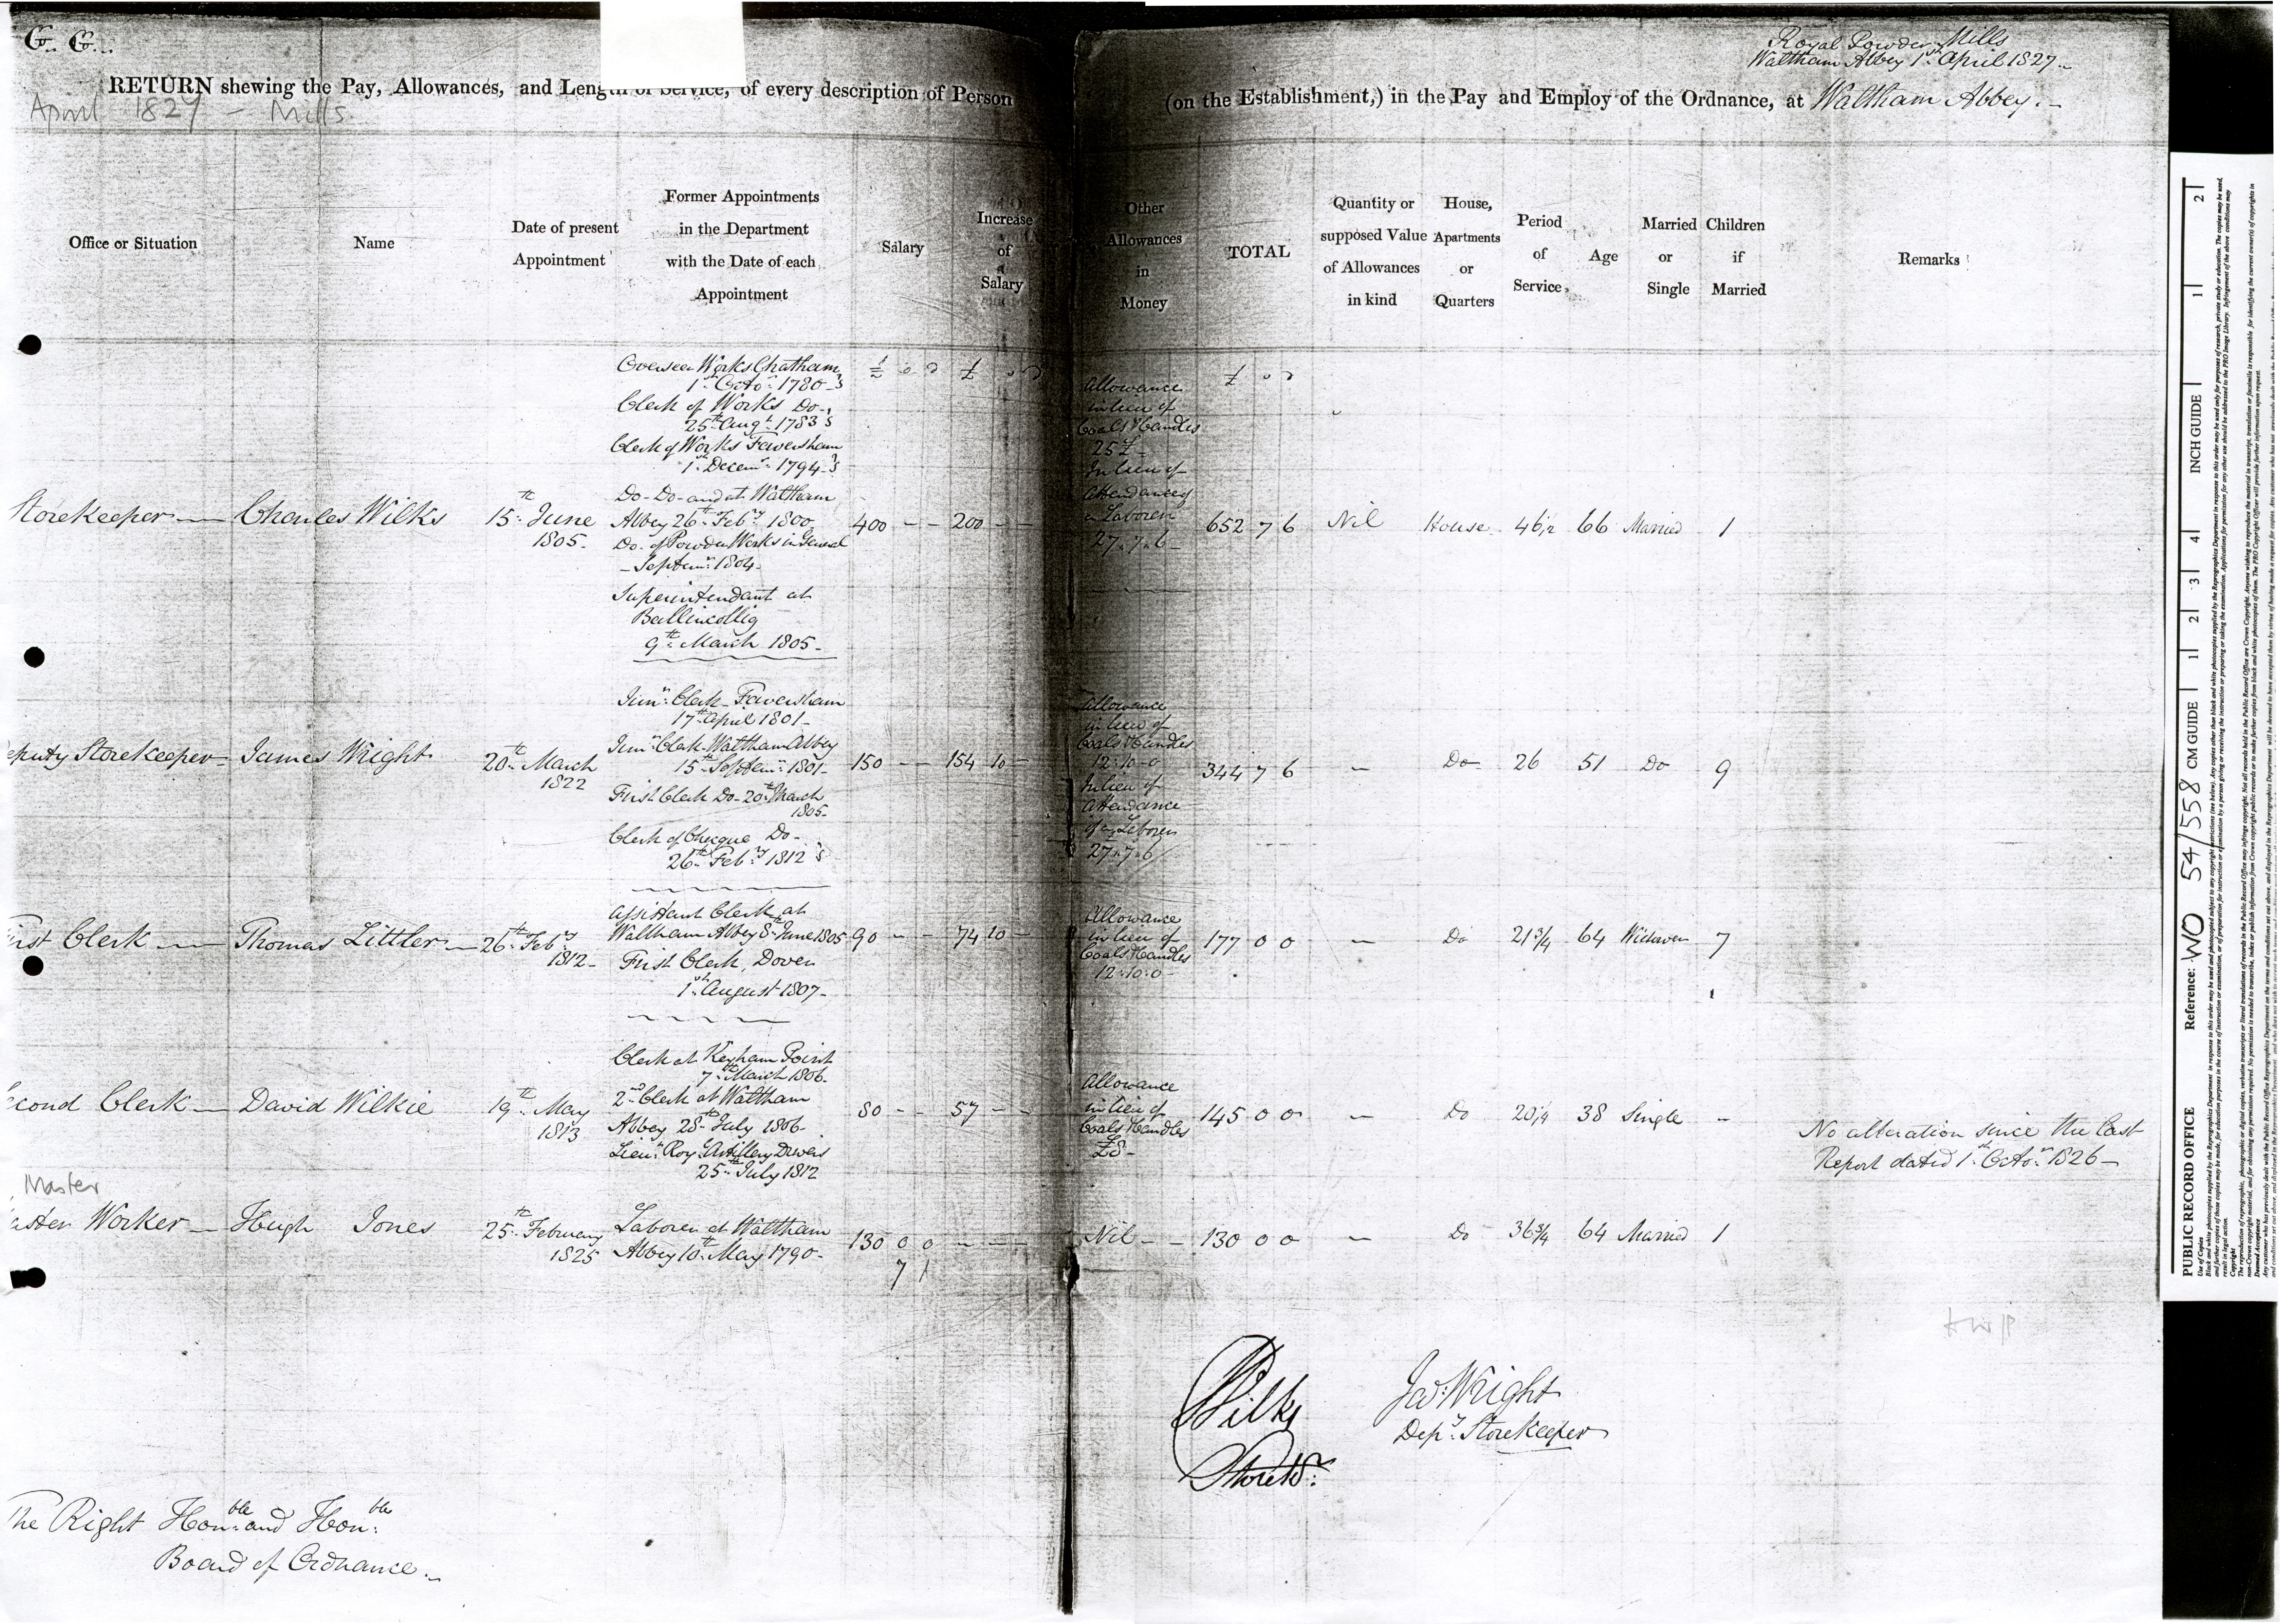 G. G.
Royal Powder Mills
Waltham Abbey 1st April 1827
RETURN shewing the Pay, Allowances, and Length of Service, of every description of Person (on the Establishment,) in the Pay and Employ of the Ordnance, at Waltham Abbey.
April 1827 - Mills
Office or Situation
Name
Date of present
Appointment
Former Appointments
in the Department
with the Date of each
Appointment
Salary
Increase
of
Salary
Other
Allowances
in
Money
TOTAL
Quantity or
supposed Value
of Allowances
in kind
House,
Apartments
or
Quarters
Period
of
Service
Age
Married
or
Single
Children
if
Married
Remarks
Storekeeper — Charles Wilks
15th June
1805
Overseer Works Chatham
1st Octor 1780
Clerk of Works Do
25th Augt 1783
Clerk of Works Faversham
1st Decemr 1794
Do - Do - and at Waltham
Abbey 26th Feby 1800
Do of Powder Works in General
Septemr 1804
Superintendant at
Ballincollig
9th March 1805
£ s d
400 - -
£ s d
200 - -
Allowance
in lieu of
Coals & Candles
25£
In lieu of
Attendance of
a Laborer
27.7.6
£ s d
652 7 6
Nil
House
46 1/2
66
Married
1
eputy Storekeeper - James Wright
20th March
1822
Junr Clerk Faversham
17th April 1801
Junr Clerk Waltham Abbey
15th Septemr 1801
First Clerk Do 20th March
1805
Clerk of Checque Do
26th Feby 1812
150 - -
154 10 -
Allowance
in lieu of
Coals & Candles
12.10.0
In lieu of
Attendance
of a Laborer
27.7.6
344 7 6
-
Do
26
51
Do
9
irst Clerk — Thomas Littler
26th Feby
1812
Assistant Clerk at
Waltham Abbey 8th June 1805
First Clerk, Dover
1st August 1807
90 - -
74 10 -
Allowance
in lieu of
Coals & Candles
12.10.0
177 0 0
-
Do
21 3/4
64
Widower
7
econd Clerk — David Wilkie
19th May
1813
Clerk at Keyham Point
7th March 1806
2nd Clerk at Waltham
Abbey 28th July 1806
Lieut Roy Artillery Drivers
25th July 1812
80 - -
57 - -
Allowance
in lieu of
Coals & Candles
£8
145 0 0
-
Do
20 1/4
38
Single
-
No alteration since the last
Report dated 1st Octor 1826
Master
aster Worker — Hugh Jones
25th February
1825
Laborer at Waltham
Abbey 10th May 1790
130 0 0
- - -
7 1
Nil
130 0 0
-
Do
36 3/4
64
Married
1
Wilks
Storekr
Jas Wright
Depy Storekeeper
The Right Honble and Honble
Board of Ordnance
PUBLIC RECORD OFFICE
Reference: WO 54/558
CM GUIDE 1 2 3 4
INCH GUIDE 1 2